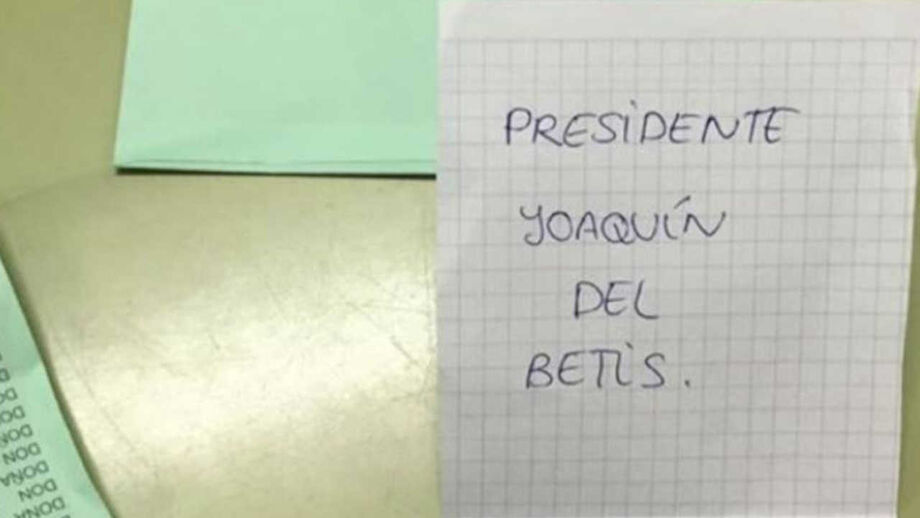 PRESIDENTE
JOAQUÍN
DEL
BETIS.
DOÑA
DON
DOÑA
DON
DOÑA